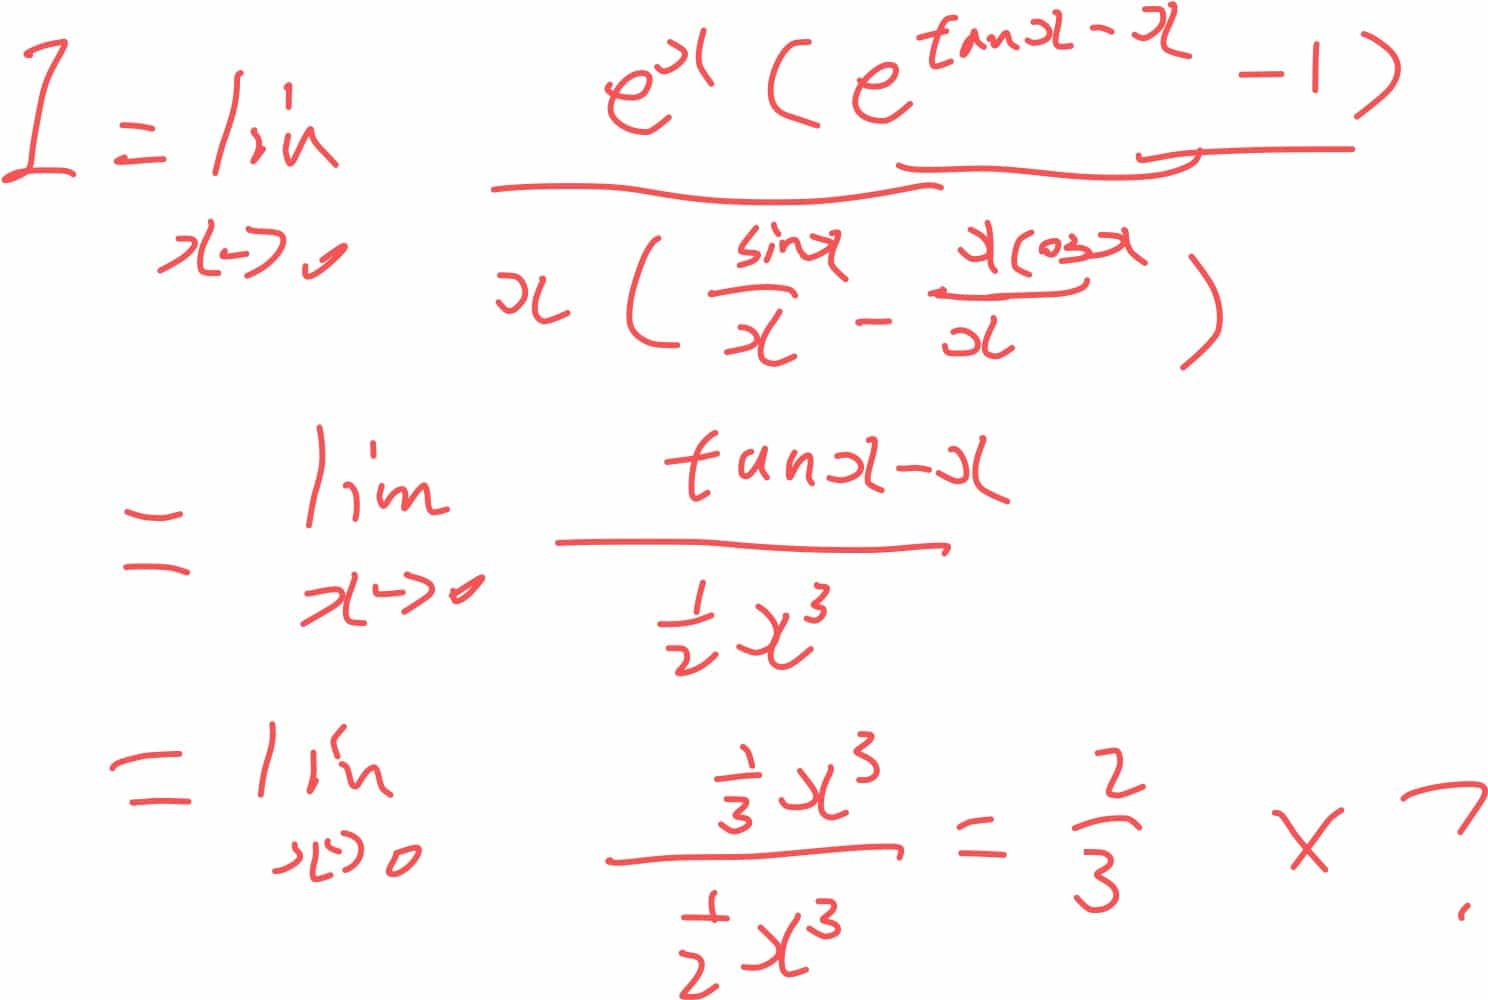 I = lim x→0 e^x (e^(tanx - x) - 1) / x (sinx/x - xcosx/x)
= lim x→0 (tanx - x) / (1/2 x^3)
= lim x→0 (1/3 x^3) / (1/2 x^3) = 2/3 × ?